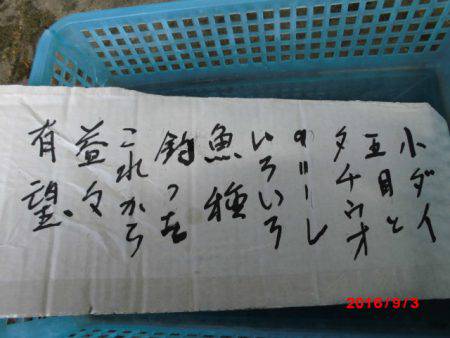 小ダイ
五目と
タチウオ
いろいろ
魚種
釣った
これから
益々
有望。
2016/9/3